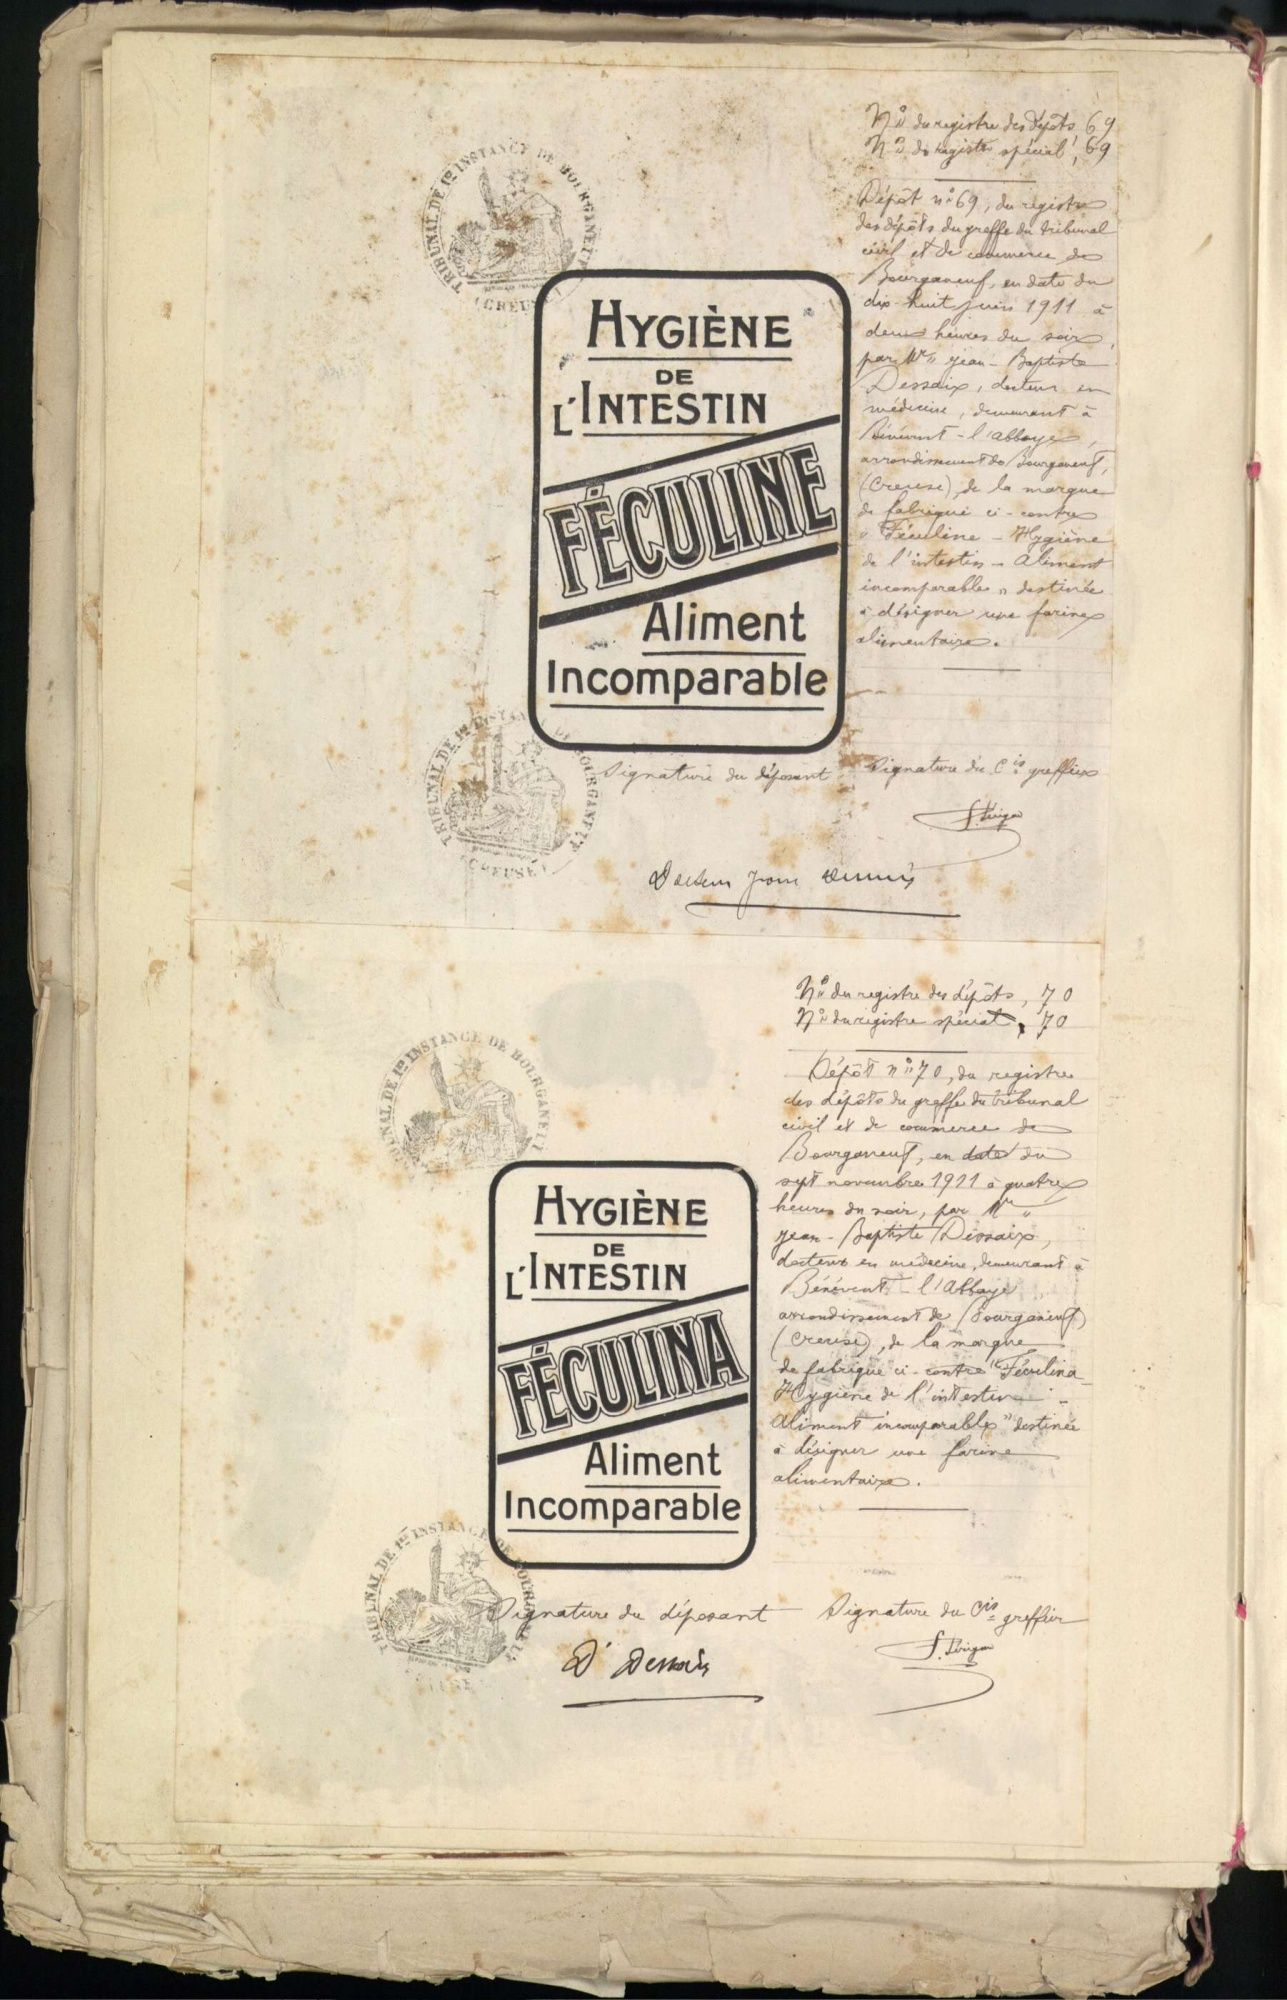 N° du registre des dépôts, 69
N° du registre spécial, 69
Dépôt n° 69, du registre
des dépôts du greffe du tribunal
civil et de commerce de
Bourganeuf, en date du
dix-huit juin 1911 à
deux heures du soir,
par Mr " Jean-Baptiste
Dessaix, docteur en
médecine, demeurant à
Bénévent-l'abbaye,
arrondissement de Bourganeuf,
(Creuse), de la marque
de fabrique ci-contre
" Féculine - Hygiène
de l'intestin - Aliment
incomparable " destinée
à désigner une farine
alimentaire.
TRIBUNAL DE 1re INSTANCE DE BOURGANEUF
(CREUSE)
HYGIÈNE
DE
L'INTESTIN
FÉCULINE
Aliment
Incomparable
TRIBUNAL DE 1re INSTANCE DE BOURGANEUF
(CREUSE)
Signature du déposant
Signature du Cis greffier
Docteur
N° du registre des dépôts, 70
N° du registre spécial, 70
Dépôt n° 70, du registre
des dépôts du greffe du tribunal
civil et de commerce de
Bourganeuf, en date du
sept novembre 1911 à quatre
heures du soir, par Mr "
Jean-Baptiste Dessaix,
docteur en médecine, demeurant à
Bénévent-l'Abbaye,
arrondissement de Bourganeuf,
(Creuse), de la marque
de fabrique ci-contre "Féculina-
Hygiène de l'intestin -
Aliment incomparable" destinée
à désigner une farine
alimentaire.
TRIBUNAL DE 1re INSTANCE DE BOURGANEUF
HYGIÈNE
DE
L'INTESTIN
FÉCULINA
Aliment
Incomparable
TRIBUNAL DE 1re INSTANCE DE BOURGANEUF
Signature du déposant
Signature du Cis greffier
Dr Dessaix